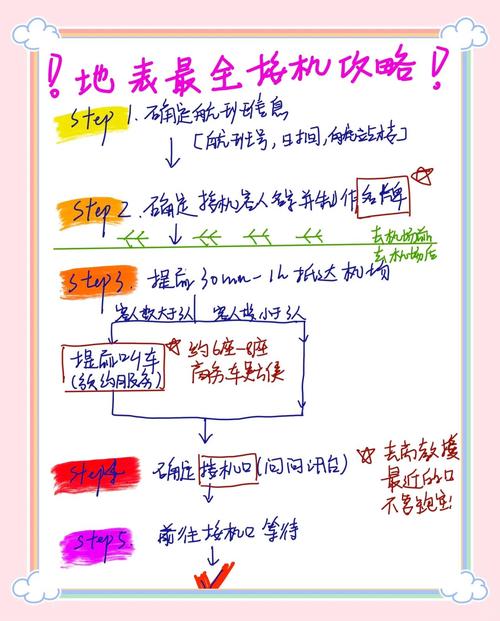 ！地表最全接机攻略！
step 1. 确定航班信息
[航班号，日期时间，航站楼]
step 2. 确定接机客人名字并制作名牌
去机场前
去机场后
step 3. 提前30min-1h抵达机场
客人数大于3人 客人数小于3人
提前叫车
(预约用服务)
约6座-8座
商务车等候
step 4 确定接机口(问问讯台)
去离
最近的口
不容跑空
step 5. 前往接机口等待